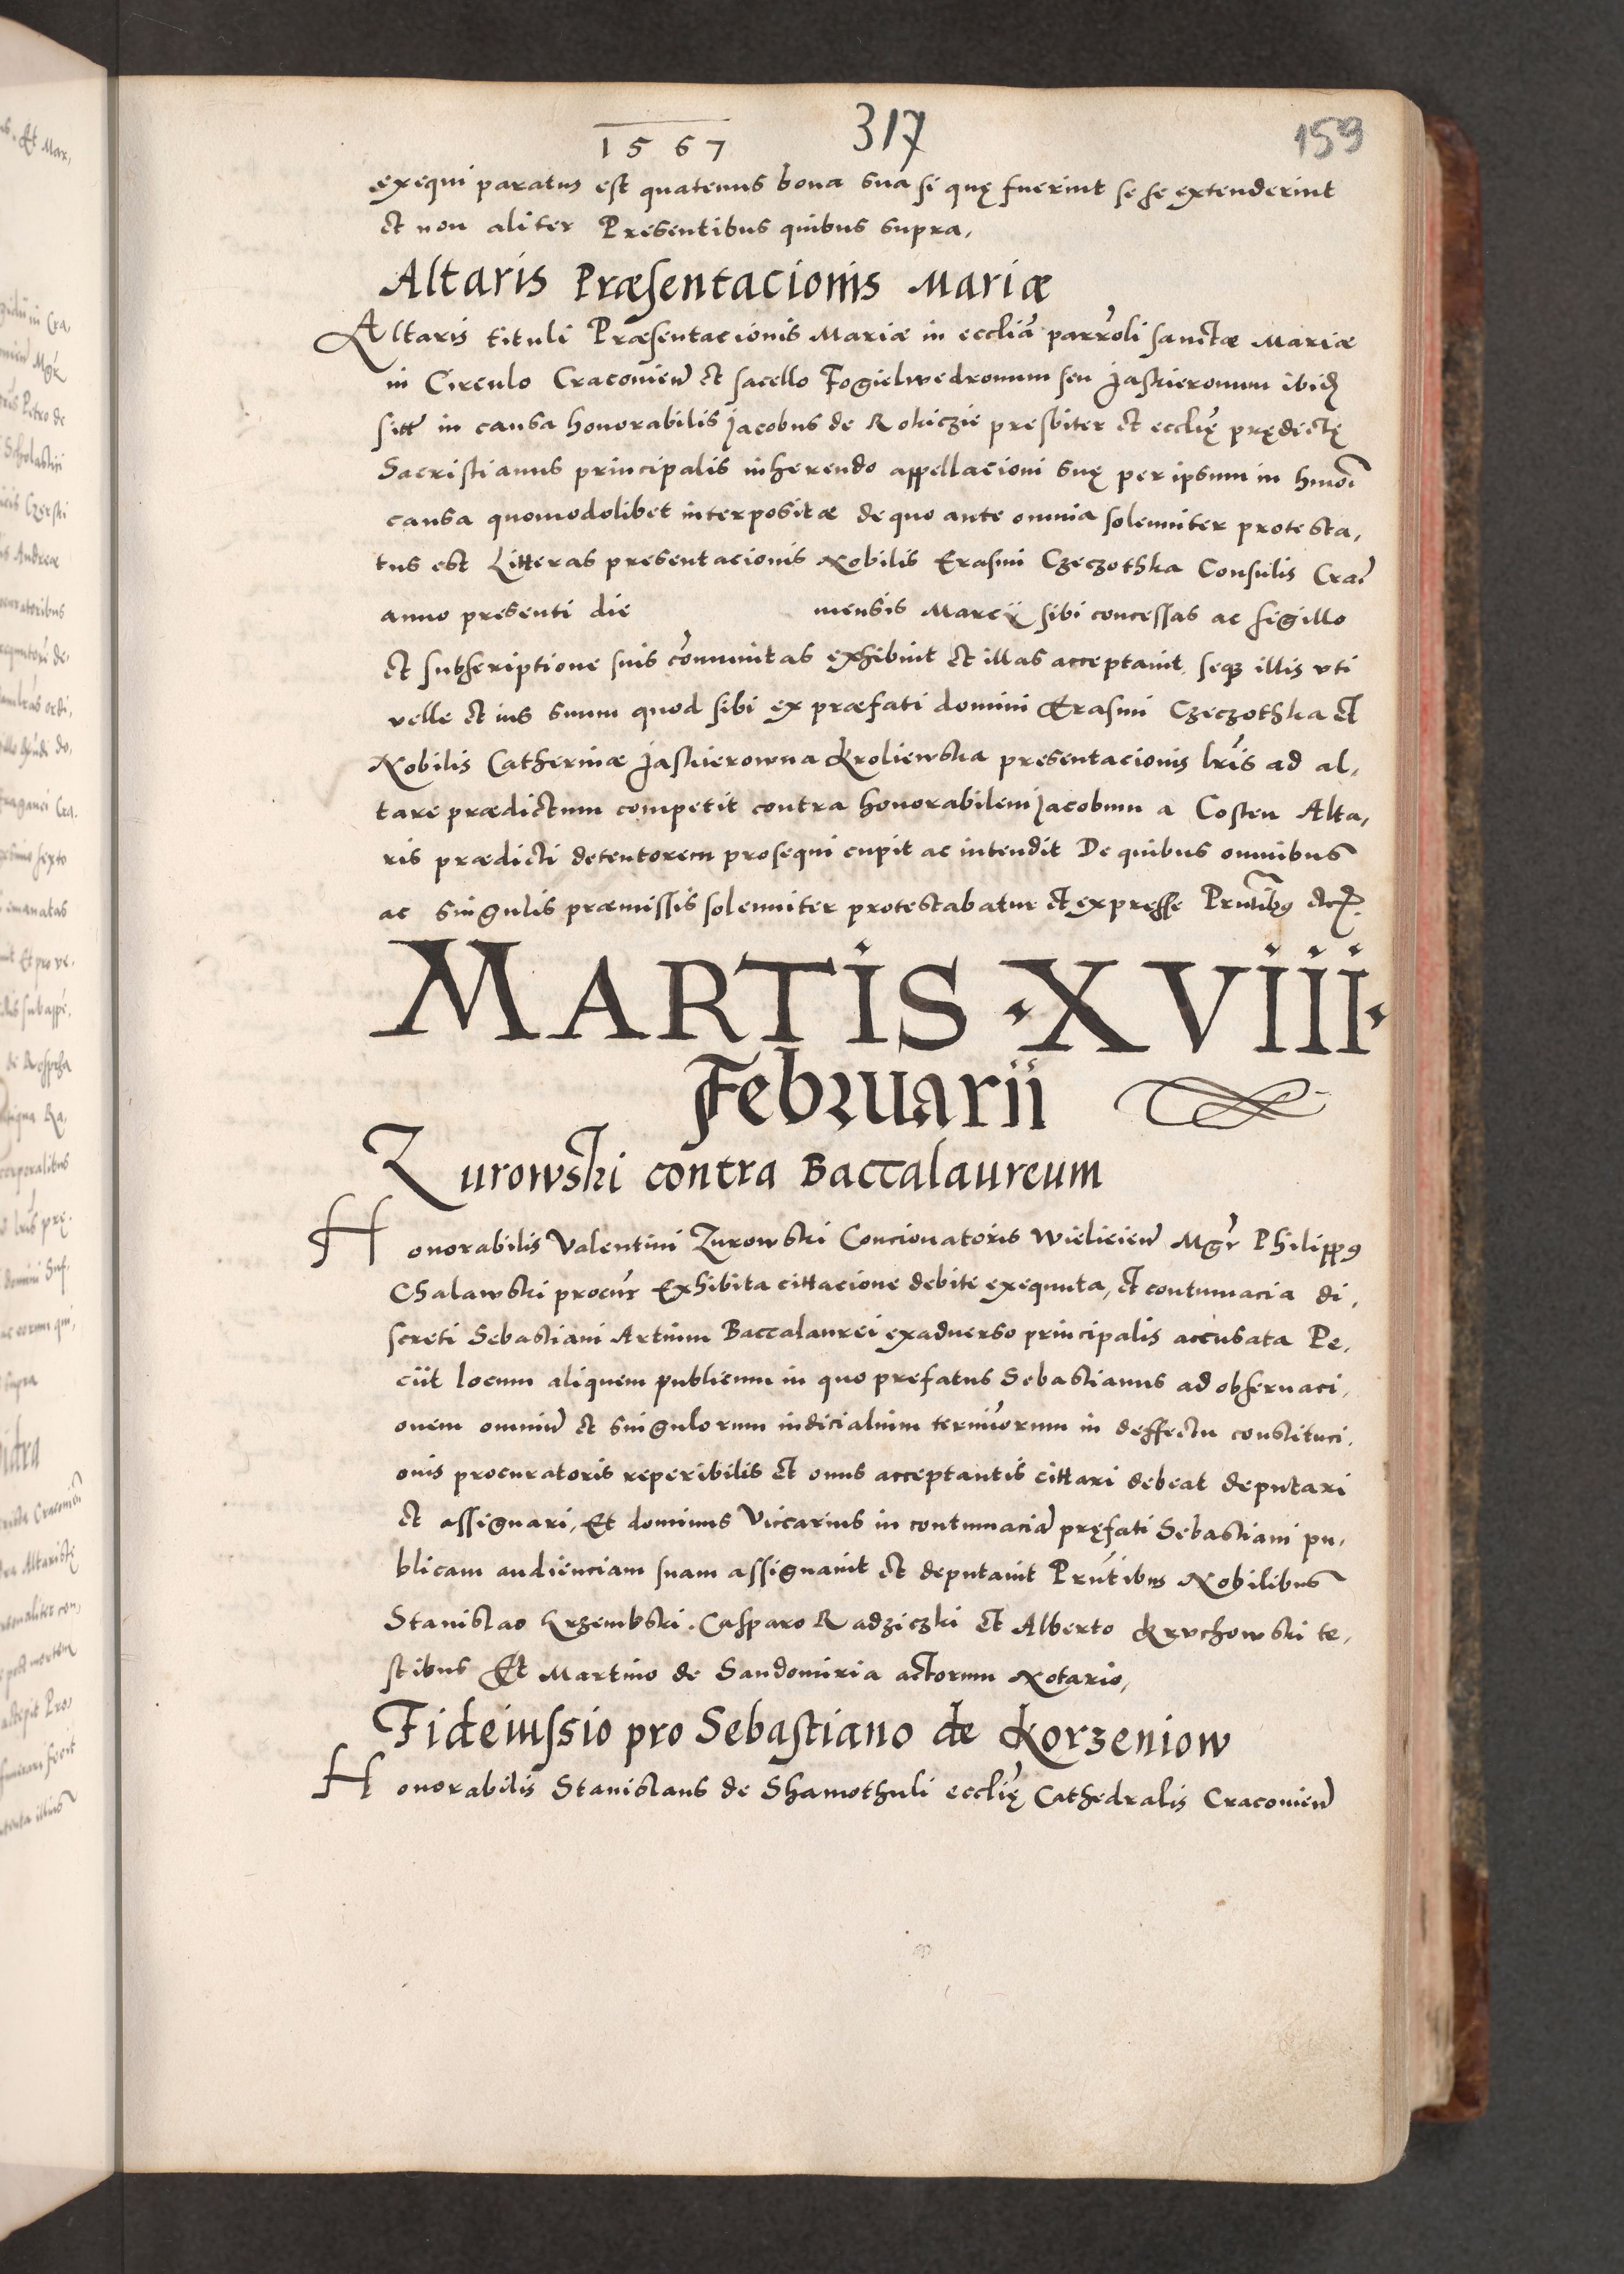 1567 317 159
exequi paratus est quatenus bona sua si quę fuerint se se extenderint
et non aliter Presentibus quibus supra,
Altaris Præsentacionis Mariæ
Altaris tituli Præsentacionis Mariæ in eccliã parr̃oli sanctæ Mariæ
in Circulo Cracovień et sacello Fogielwedronum seu Jaskieronum ibid̨
sitt̃ in causa honorabilis Jacobus de Rokiczie presbiter et ecclię̃ prędictę
Sacristianus principalis inherendo appellacioni suę per ipsum in hmõi
causa quomodolibet interpositæ de quo ante omnia solenniter protesta,
tus est Litteras presentacionis Nobilis Erasmi Czeczothka Consulis Crac̃
anno presenti die mensis Marcij sibi concessas ac sigillo
et subscriptione suis cõmunitas exhibuit et illas acceptavit, seq3 illis vti
velle et ius suum quod sibi ex præfati domini Erasmi Czeczothka et
Nobilis Catherinæ Jaskierowna Kroliewska presentacionis lr̃is ad al,
tare prædictum competit contra honorabilem Jacobum a Costen Alta,
ris prædicti detentorem prosequi cupit ac intendit De quibus omnibus
ac singulis præmissis solenniter protestabatur et expresse Prñtib9 etc̃.
MARTIS · XVIIII ·
Februarii
Zurowski contra Baccalaureum
Honorabilis Valentini Zurowski Concionatoris Wielicień Mgr̃ Philipp9
Chalawski procur̃ Exhibita cittacione debite exequuta, et contumacia di,
screti Sebastiani Artium Baccalaurei exadverso principalis accusata Pe,
ciit locum aliquem publicum in quo prefatus Sebastianus ad observaci,
onem omniũ et singulorum iudicialium termĩorum in deffectu constituci,
onis procuratoris reperibilis et onus acceptantis cittari debeat deputari
et assignari, Et dominus Viccarius in contumaciã pręfati Sebastiani pu,
blicam audienciam suam assignavit et deputavit Prñtibus Nobilibus
Stanislao Krzembski, Casparo Radziczki et Alberto Kruchowski te,
stibus Et Martino de Sandomiria actorum Notario,
Fideiussio pro Sebastiano de Korzeniow
Honorabilis Stanislaus de Shamothuli ecclię̃ Cathedralis Cracovień